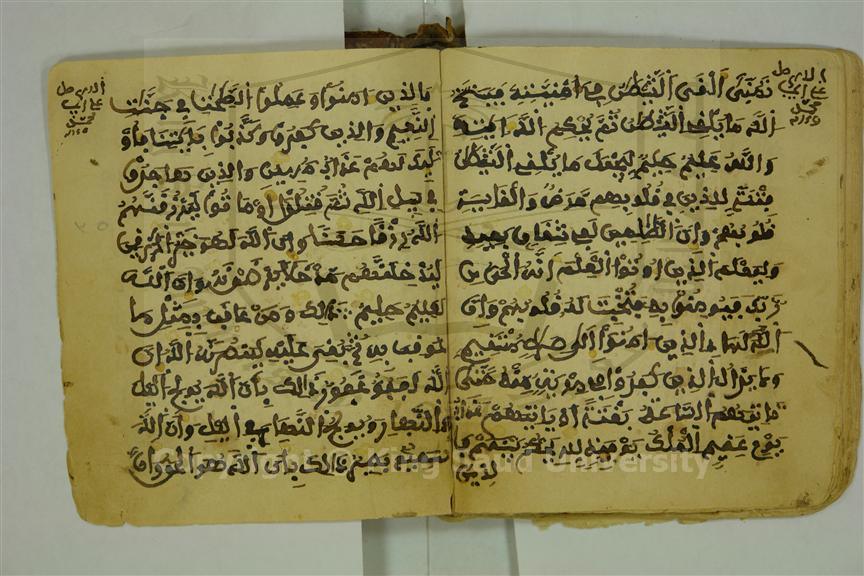 تمنى ألقى الشيطن في أمنيته فينسخ
الله ما يلقي الشيطن ثم يحكم الله ءايته
والله عليم حكيم ليجعل ما يلقي الشيطن
فتنة للذين في قلوبهم مرض والقاسية
قلوبهم وإن الظلمين لفي شقاق بعيد
وليعلم الذين أوتوا العلم أنه الحق من
ربك فيومنوا به فتخبت له قلوبهم وإن
الله لهاد الذين ءامنوا إلى صراط مستقيم
ولا يزال الذين كفروا في مرية منه حتى
تاتيهم الساعة بغتة أو ياتيهم عذاب
يوم عقيم الملك يومئذ لله يحكم بينهم فا
لذين
بالذين ءامنوا وعملوا الصلحت في جنت
النعيم والذين كفروا وكذبوا بئايتنا فأو
لئك لهم عذاب مهين والذين هاجروا
في سبيل الله ثم قتلوا أو ماتوا ليرزقنهم
الله رزقا حسنا وإن الله لهو خير الرزقين
ليدخلنهم مدخلا يرضونه وإن الله
لعليم حليم ذلك ومن عاقب بمثل ما
عوقب به ثم بغي عليه لينصرنه الله إن
الله لعفو غفور ذلك بأن الله يولج اليل
في النهار ويولج النهار في اليل وأن الله
سميع بصير ذلك بأن الله هو الحق وأن
Copyright © King Saud University